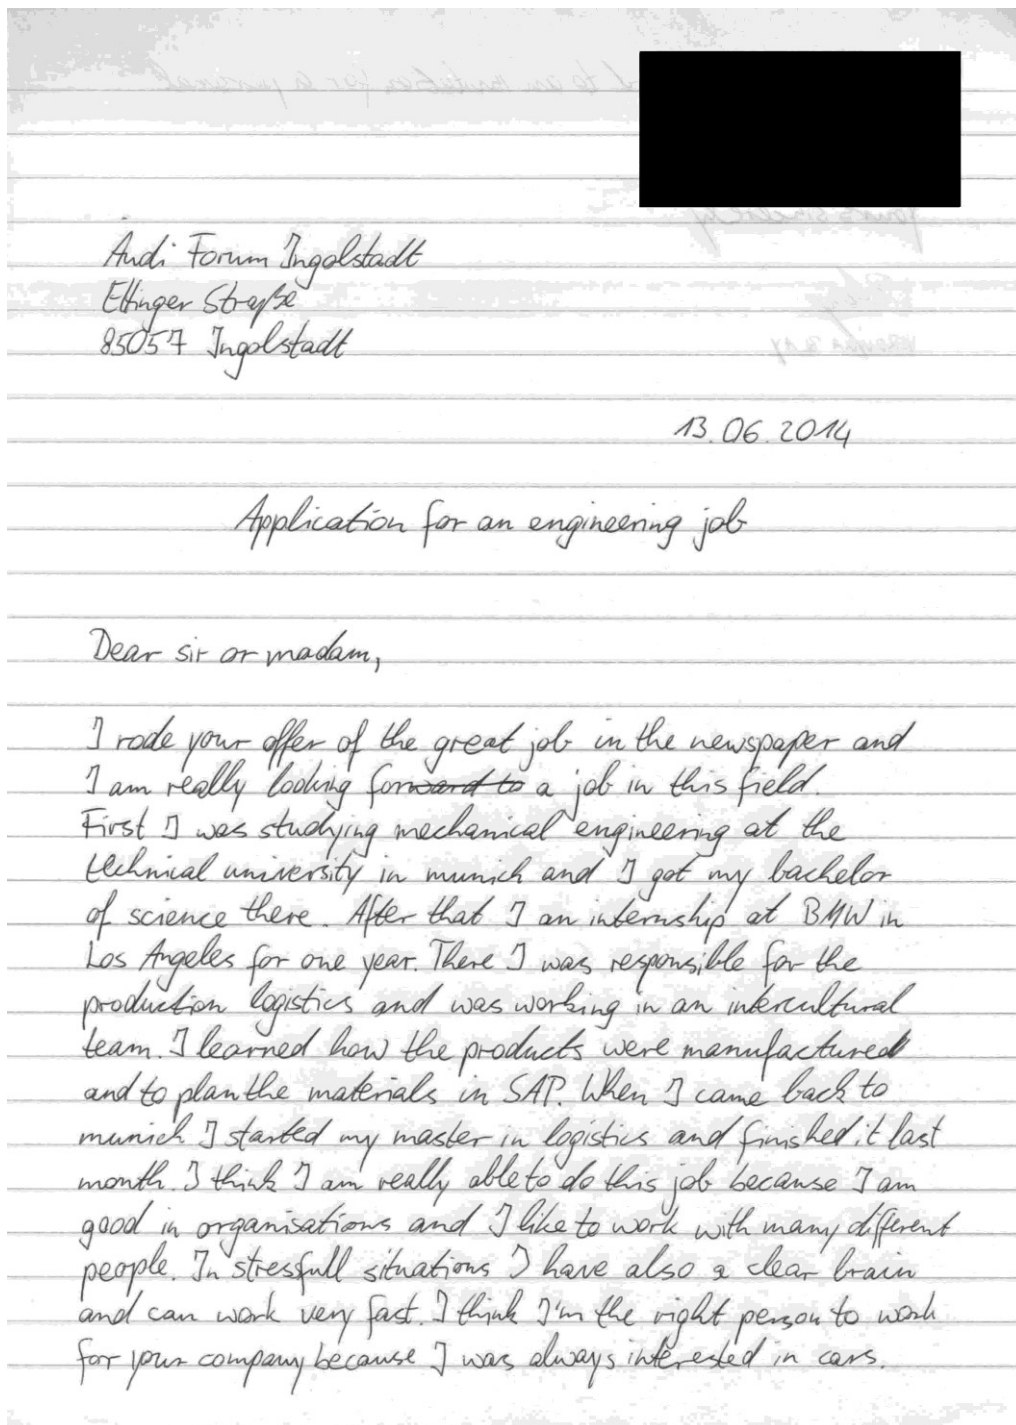 Audi Forum Ingolstadt
Ettinger Straße
85057 Ingolstadt
13.06.2014
Application for an engineering job
Dear sir or madam,
I rode your offer of the great job in the newspaper and
I am really looking forward to a job in this field.
First I was studying mechanical engineering at the
technical university in munich and I got my bachelor
of science there. After that I an internship at BMW in
Los Angeles for one year. There I was responsible for the
production logistics and was working in an intercultural
team. I learned how the products were manufactured
and to plan the materials in SAP. When I came back to
munich I started my master in logistics and finished it last
month. I think I am really able to do this job because I am
good in organisations and I like to work with many different
people. In stressfull situations I have also a clear brain
and can work very fast. I think I'm the right person to work
for your company because I was always interested in cars.